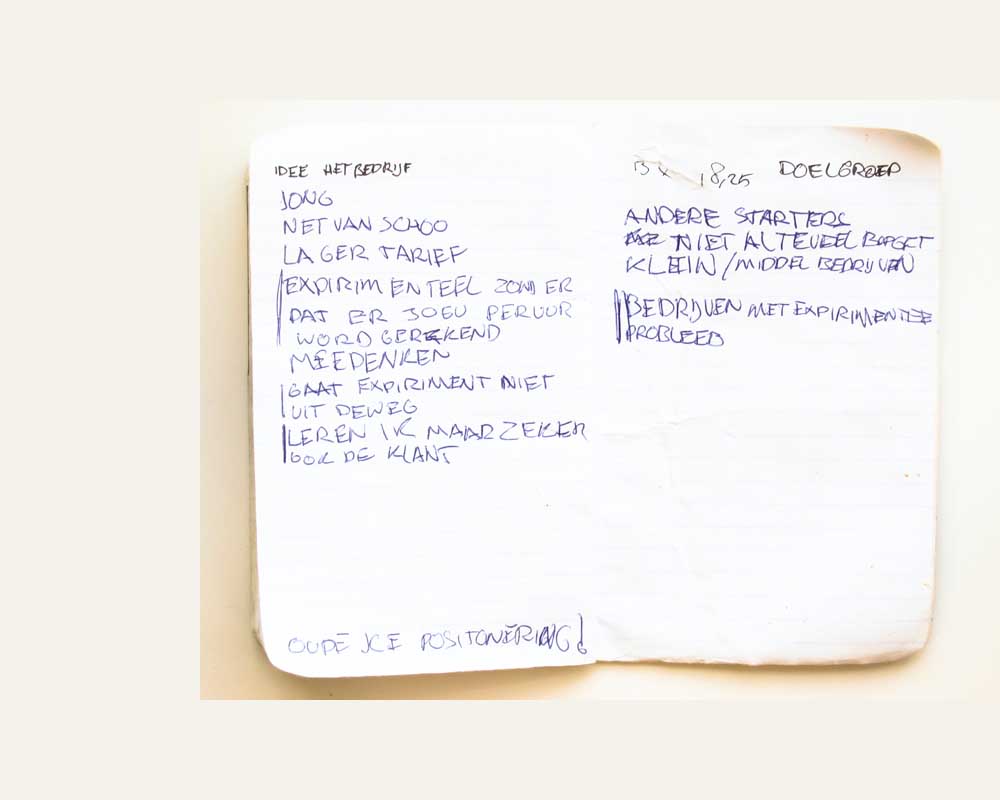 IDEE HET BEDRIJF
JONG
NET VAN SCHOO
LAGER TARIEF
EXPIRIMENTEEL ZONDER
DAT ER JOEU PER UUR
WORD GEREKEND
MEEDENKEN
GAAT EXPIRIMENT NIET
UIT DEWEG
LEREN IK MAAR ZEKER
OOK DE KLANT
OUDE JCE POSITONERING!
18,25 DOELGROEP
ANDERE STARTERS
NIET ALTEVEEL BUDGET
KLEIN/MIDDEL BEDRIJVEN
BEDRIJVEN MET EXPIRIMENTEE
PROBLEED